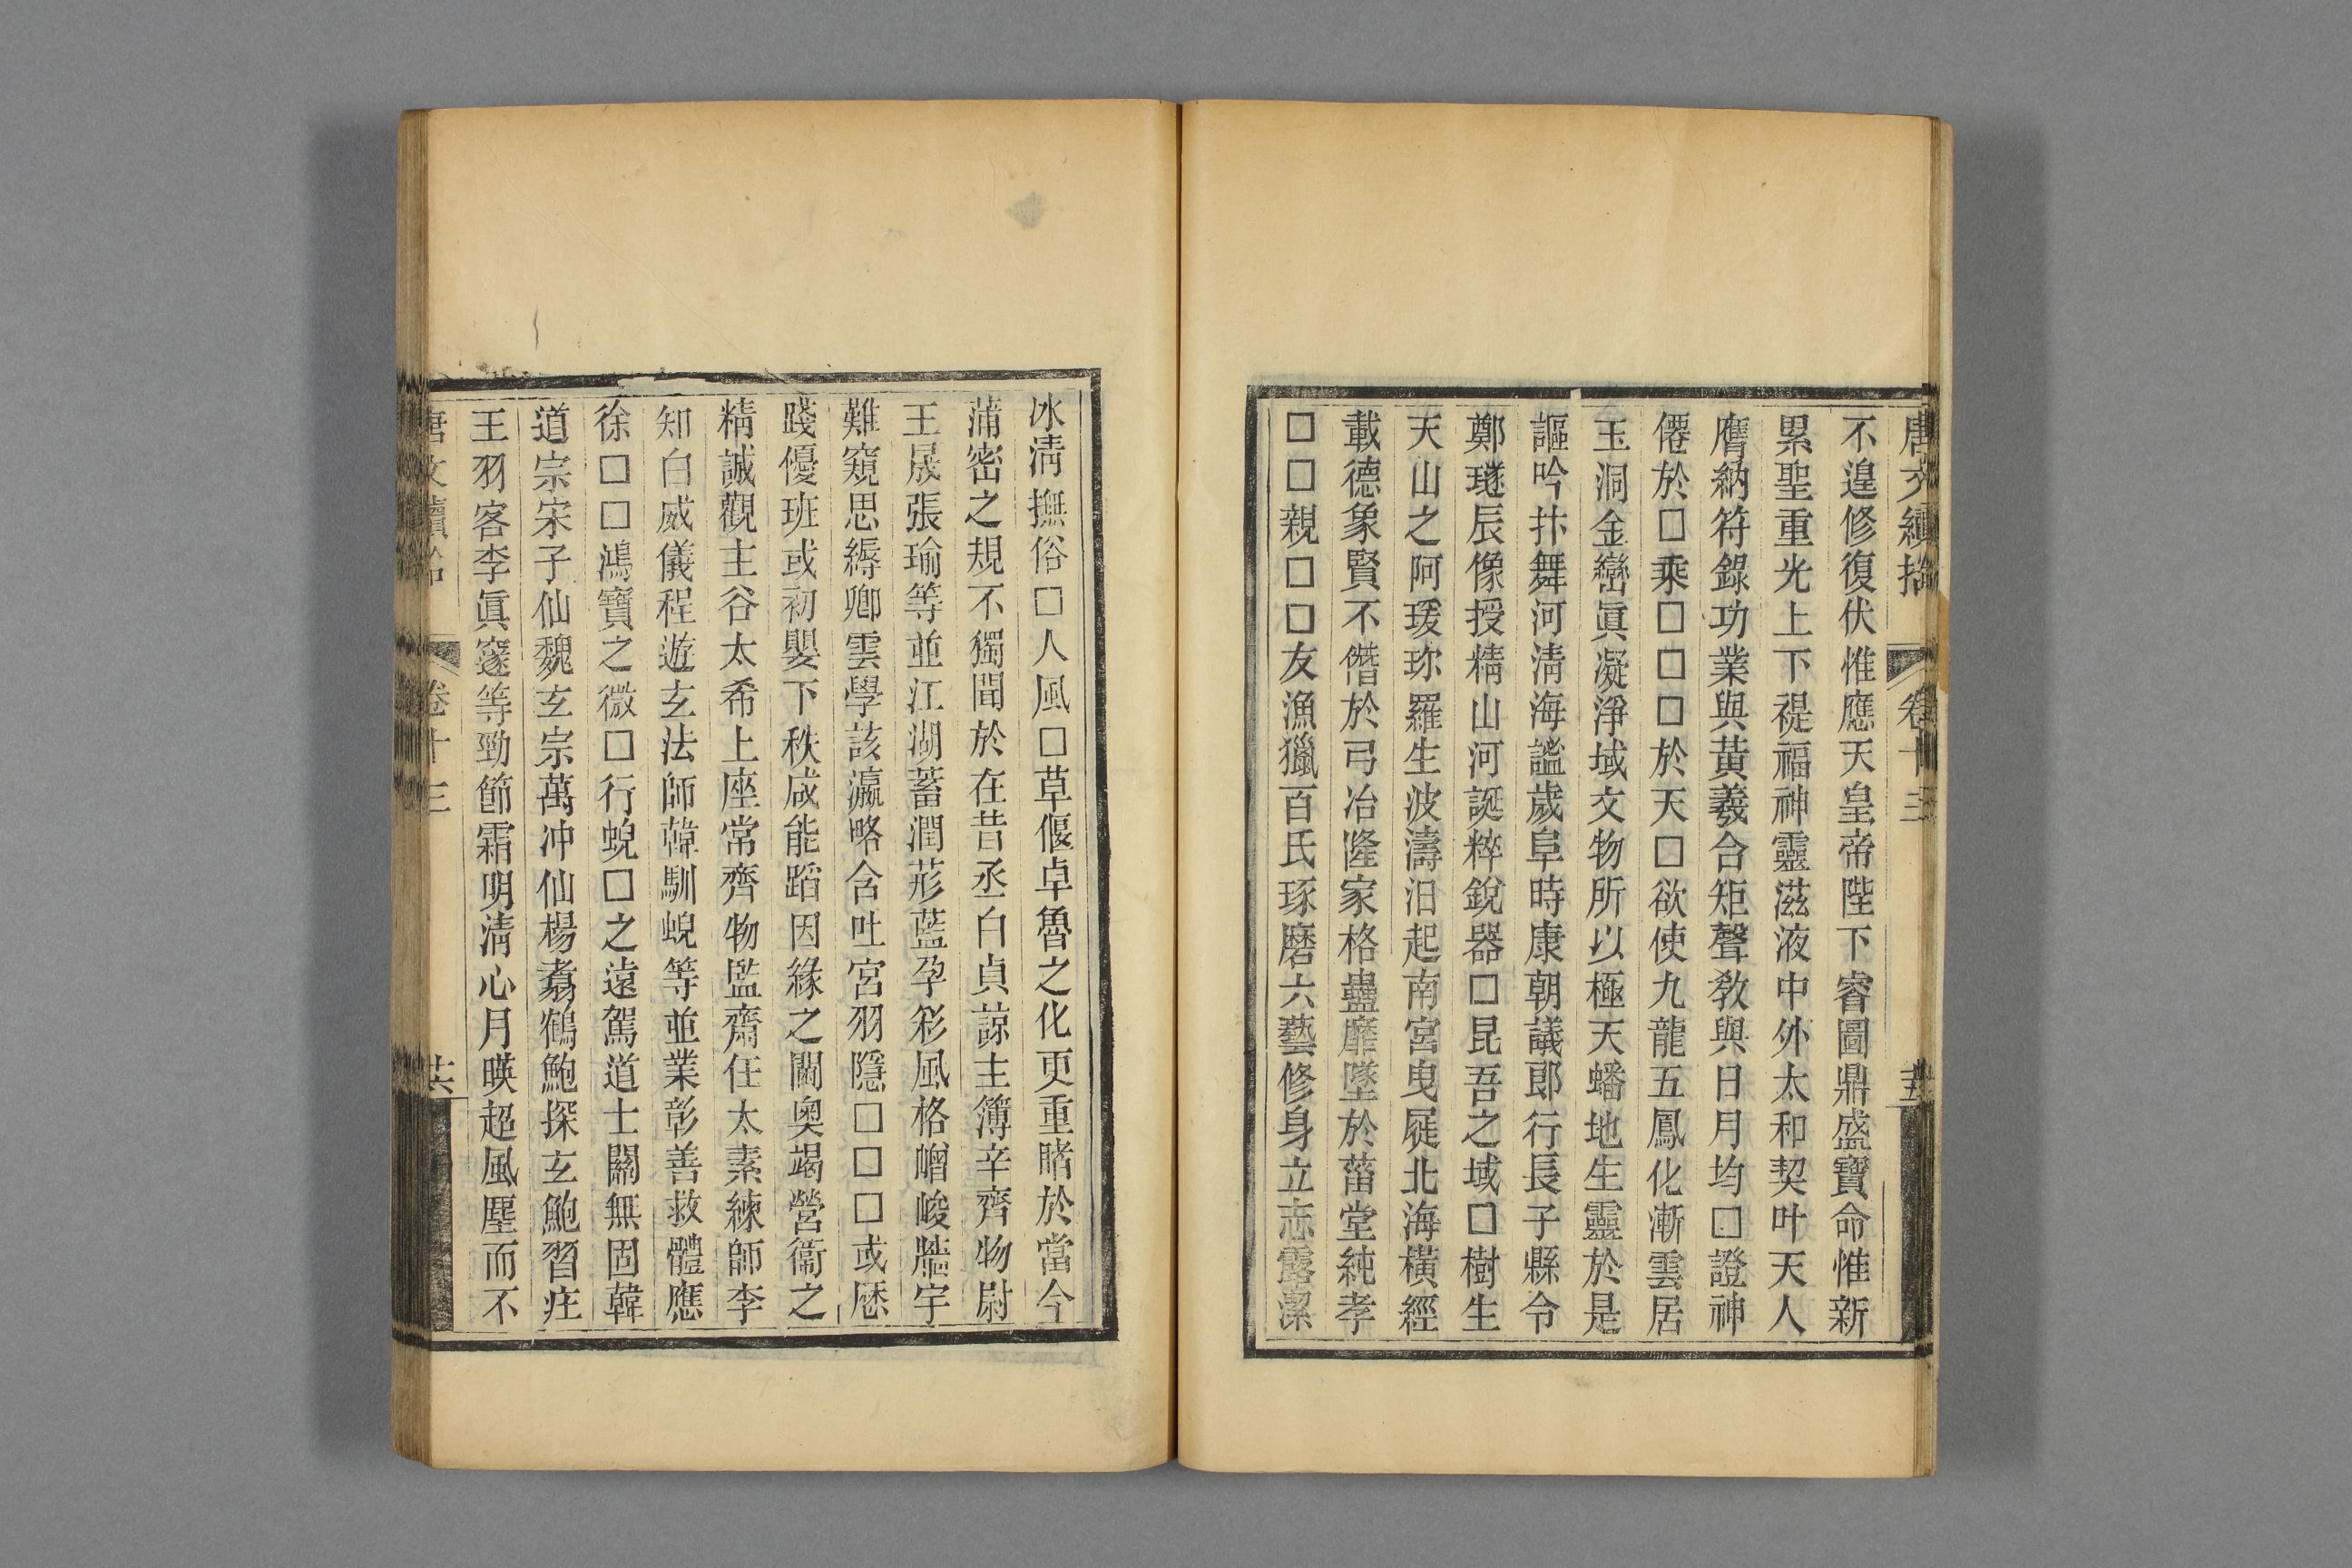 唐文續拾 卷十三 十五
不遑修復伏惟應天皇帝陛下睿圖鼎盛寶命惟新
累聖重光上下禔福神靈滋液中外太和契叶天人
膺納符錄功業與黃羲合矩聲敎與日月均□證神
僊於□乘□□□於天□欲使九龍五鳳化漸雲居
玉洞金巒眞凝淨域文物所以極天蟠地生靈於是
謳吟抃舞河淸海謐歲阜時康朝議郎行長子縣令
鄭璲辰像授精山河誕粹銳器□昆吾之域□樹生
天山之阿瑗珎羅生波濤汨起南宮曳屣北海橫經
載德象賢不僭於弓冶隆家格蠱靡墜於菑堂純孝
□□親□□友漁獵百氏琢磨六藝修身立志露潔
冰淸撫俗□人風□草偃卓魯之化更重睹於當今
蒲密之規不獨聞於在昔丞白貞諒主簿辛齊物尉
王晟張瑜等並江湖蓄潤菸藍孕彩風格㟳峻牆宇
難窺思縟卿雲學該瀛略含吐宮羽隱□□□或歷
踐優班或初嬰下秩咸能蹈因緣之閫奧竭營衞之
精誠觀主谷太希上座常齊物監齋任太素練師李
知白威儀程遊玄法師韓馴蛻等並業彰善救體應
徐□□鴻寶之微□行蛻□之遠駕道士關無固韓
道宗宋子仙魏玄宗萬冲仙楊翥鶴鮑探玄鮑習庄
王羽客李眞邃等勁節霜明淸心月暎超風塵而不
唐文續拾 卷十三 十六